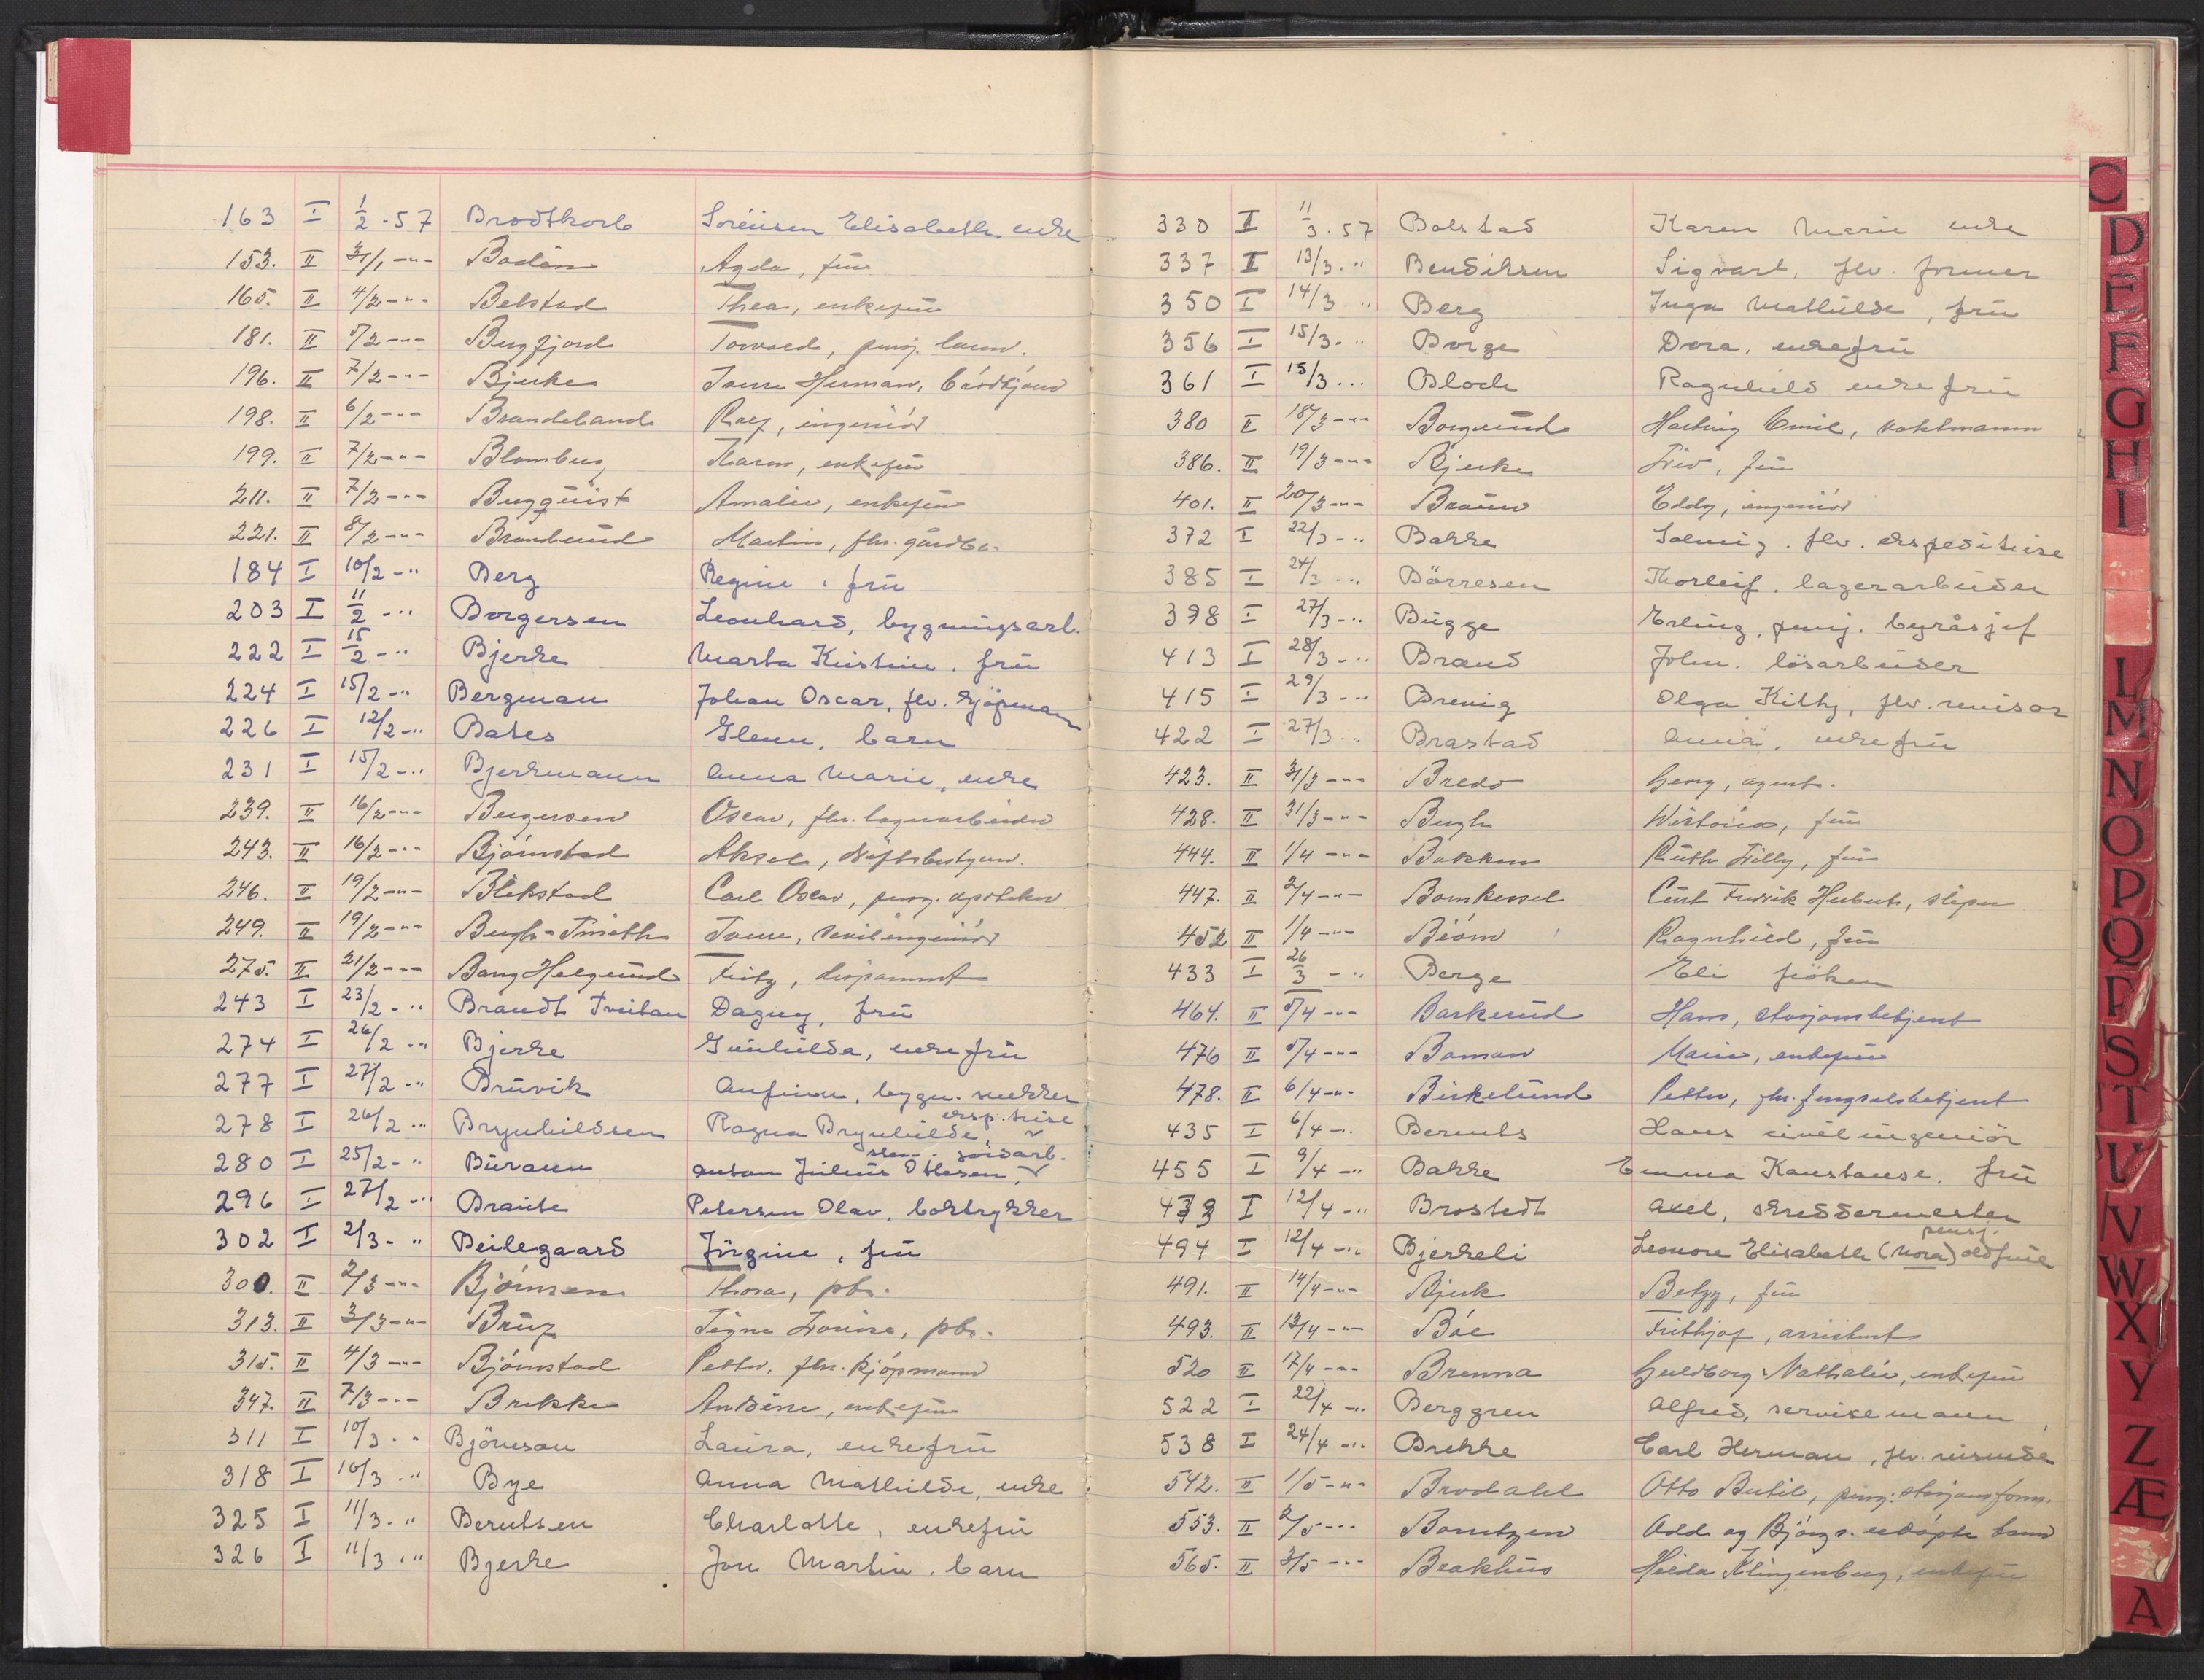 163 I 1/2 - 57 Brodtkorb Sörensen Elisabeth enke
153. II 31/1 -"- Bodén Agda, frü
165. II 4/2 -"- Bekstad Thea, enkefrü
181. II 5/2 -"- Bergfjord Torvald, pensj.
196. II 7/2 -"- Bjerke Herman,
198. II 6/2 -"- Brandeland Rolf, ingeniör
199. II 7/2 -"- Blomberg Karen, enkefrü
211. II 7/2 -"- Bergqüist Amalie, enkefrü
221. II 8/2 -"- Brandlünd Martin, fhv. gårdbr.
184 I 10/2 -" Berg Regine, frü
203 I 11/2 -" Borgersen Leonhard, bygningsarb.
222 I 15/2 -" Bjerke Marta Kristine, frü
224 I 15/2 -" Bergman Johan Oscar, flv. kjöpmann
226 I 12/2 -" Bates Glenn, barn
231 I 15/2 -" Bjerkmann Anna Marie, enke
239. II 16/2 -"- Bergersen Oscar, fhv. lagerarbeider
243. II 16/2 -"- Björnstad Aksel, driftsbestyrer.
246. II 19/2 -"- Blekstad Carl Oscar, pensj. apoteker
249. II 19/2 -"- Bergh-Smith sivilingeniör
275. II 21/2 -"- Bang Helgerüd Fritz, disponent
243 I 23/2 -" Brandt Treitan Dagny, frü
274 I 26/2 -" Bjerke Günhilda, enkefrü
277 I 27/2 -" Brüvik Anfinn, bygn. snekker
278 I 26/2 -" Brynhildsen Ragna Brynhilde, eksp.trise
280 I 25/2 -" Büraum Anton Jülius Ottesen, jordarb.
296 I 27/2 -" Braüte Petersen Olav, boktrykker
302 I 2/3 - " Beilegaard Jörgine, frü
300. II 2/3 -"- Björnsen Thora, pbr.
313. II 3/3 -"- Brüz Signe Lovise, pbr.
315. II 4/3 -"- Björnstad Petter, fhv. kjöpmann
347. II 7/3 -"- Brekke Andrine, enkefrü
311 I 10/3 - " Björnson Laüra, enkefrü
318 I 10/3 -" Bye Anna Mathilde, enke
325 I 11/3 - " Berntsen Charlotte, enkefrü
326 I 11/3 - " Bjerke Jon Martin, barn
330 I 11/3 - 57 Bolstad Karen Marie enke
337 I 13/3 - " Bendiksen Sigvart, flv. former
350 I 14/3 - " Berg Inga Mathilde, frü
356 I 15/3 - " Borge Dora, enkefrü
361 I 15/3 - " Bloch Ragnhild enkefrü
380 II 18/3 -"- Borgünd Hartvig Emil, vaktmann
386. II 19/3 -"- Bjerke Siv, frü
401. II 20/3 -"- Braün Eddy, ingeniör
372 I 22/3 -" Bakke Solveig, flv. ekspeditrise
385 I 24/3 -" Börresen Thorleif, lagerarbeider
398 I 27/3 -" Bügge Erling, pensj. byråsjef
413 I 28/3 -" Brand John, lösarbeider
415 I 29/3 -" Brenig Olga Kitty, flv. revisor
422 I 27/3 -" Brastad Anna, enkefrü
423. II 31/3 -"- Bredo Georg, agent.
428. II 31/3 -"- Bergh frü
444. II 1/4 -"- Bakken Rüth Willy, frü
447. II 2/4 -"- Bomkessel Cürt Fredrik Herbert, sliper
452 II 1/4 -"- Bröm Ragnhild, frü
433 I 26/3 -" Berge Eli fröken
464. II 5/4 -"- Barkerüd Hans, stasjonsbetjent
476 II 5/4 -"- Boman Marie, enkefrü
478. II 6/4 -"- Birkelünd Petter, fhv. fengselsbetjent
435 I 6/4 -" Bernts Hans civilingeniör
455 I 9/4 -" Bakke Emma Konstanse, frü
I 12/4 -" Brostedt Axel, skreddermester
494 I 12/4 -" Bjerkeli Leonore Elisabeth (Nora) pensj. oldfrüe
491. II 14/4 -"- Bjerk Betzy, frü
493. II 13/4 -"- Böe Frithjof, assistent
520 II 17/4 -"- Brenna Guldborg Nathalie, enkefrü
522 I 22/4 -" Berggren Alfred, servisemann
538 I 24/4 -" Brekke Carl Herman, flv. reisende
542. II 1/5 -"- Brodahl Otto Bertil, pensj. stasjonsform.
553. II 2/5 -"- Berntzen Odd og Björgs üdöpte barn
565. II 3/5 -"- Brakhüs Hilda Klingenberg, enkefrü
C
D
E
F
G
H
I
L
M
N
O
P
Q
R
S
T
U
V
W
X
Y
Z
Æ
A